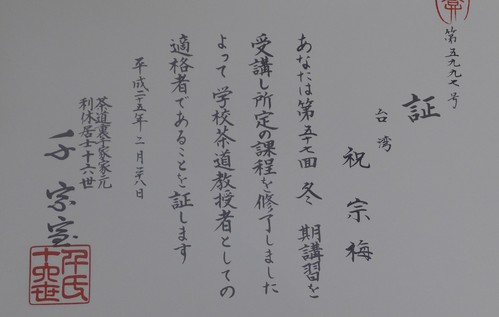 第五九九七号
証
台湾
祝宗梅
あなたは第五十七回 冬 期講習を
受講し所定の課程を修了しました
よって学校茶道教授者としての
適格者であることを証します
平成二十五年二月二十八日
茶道裏千家家元
利休居士十六世
千宗室
千氏
十六世